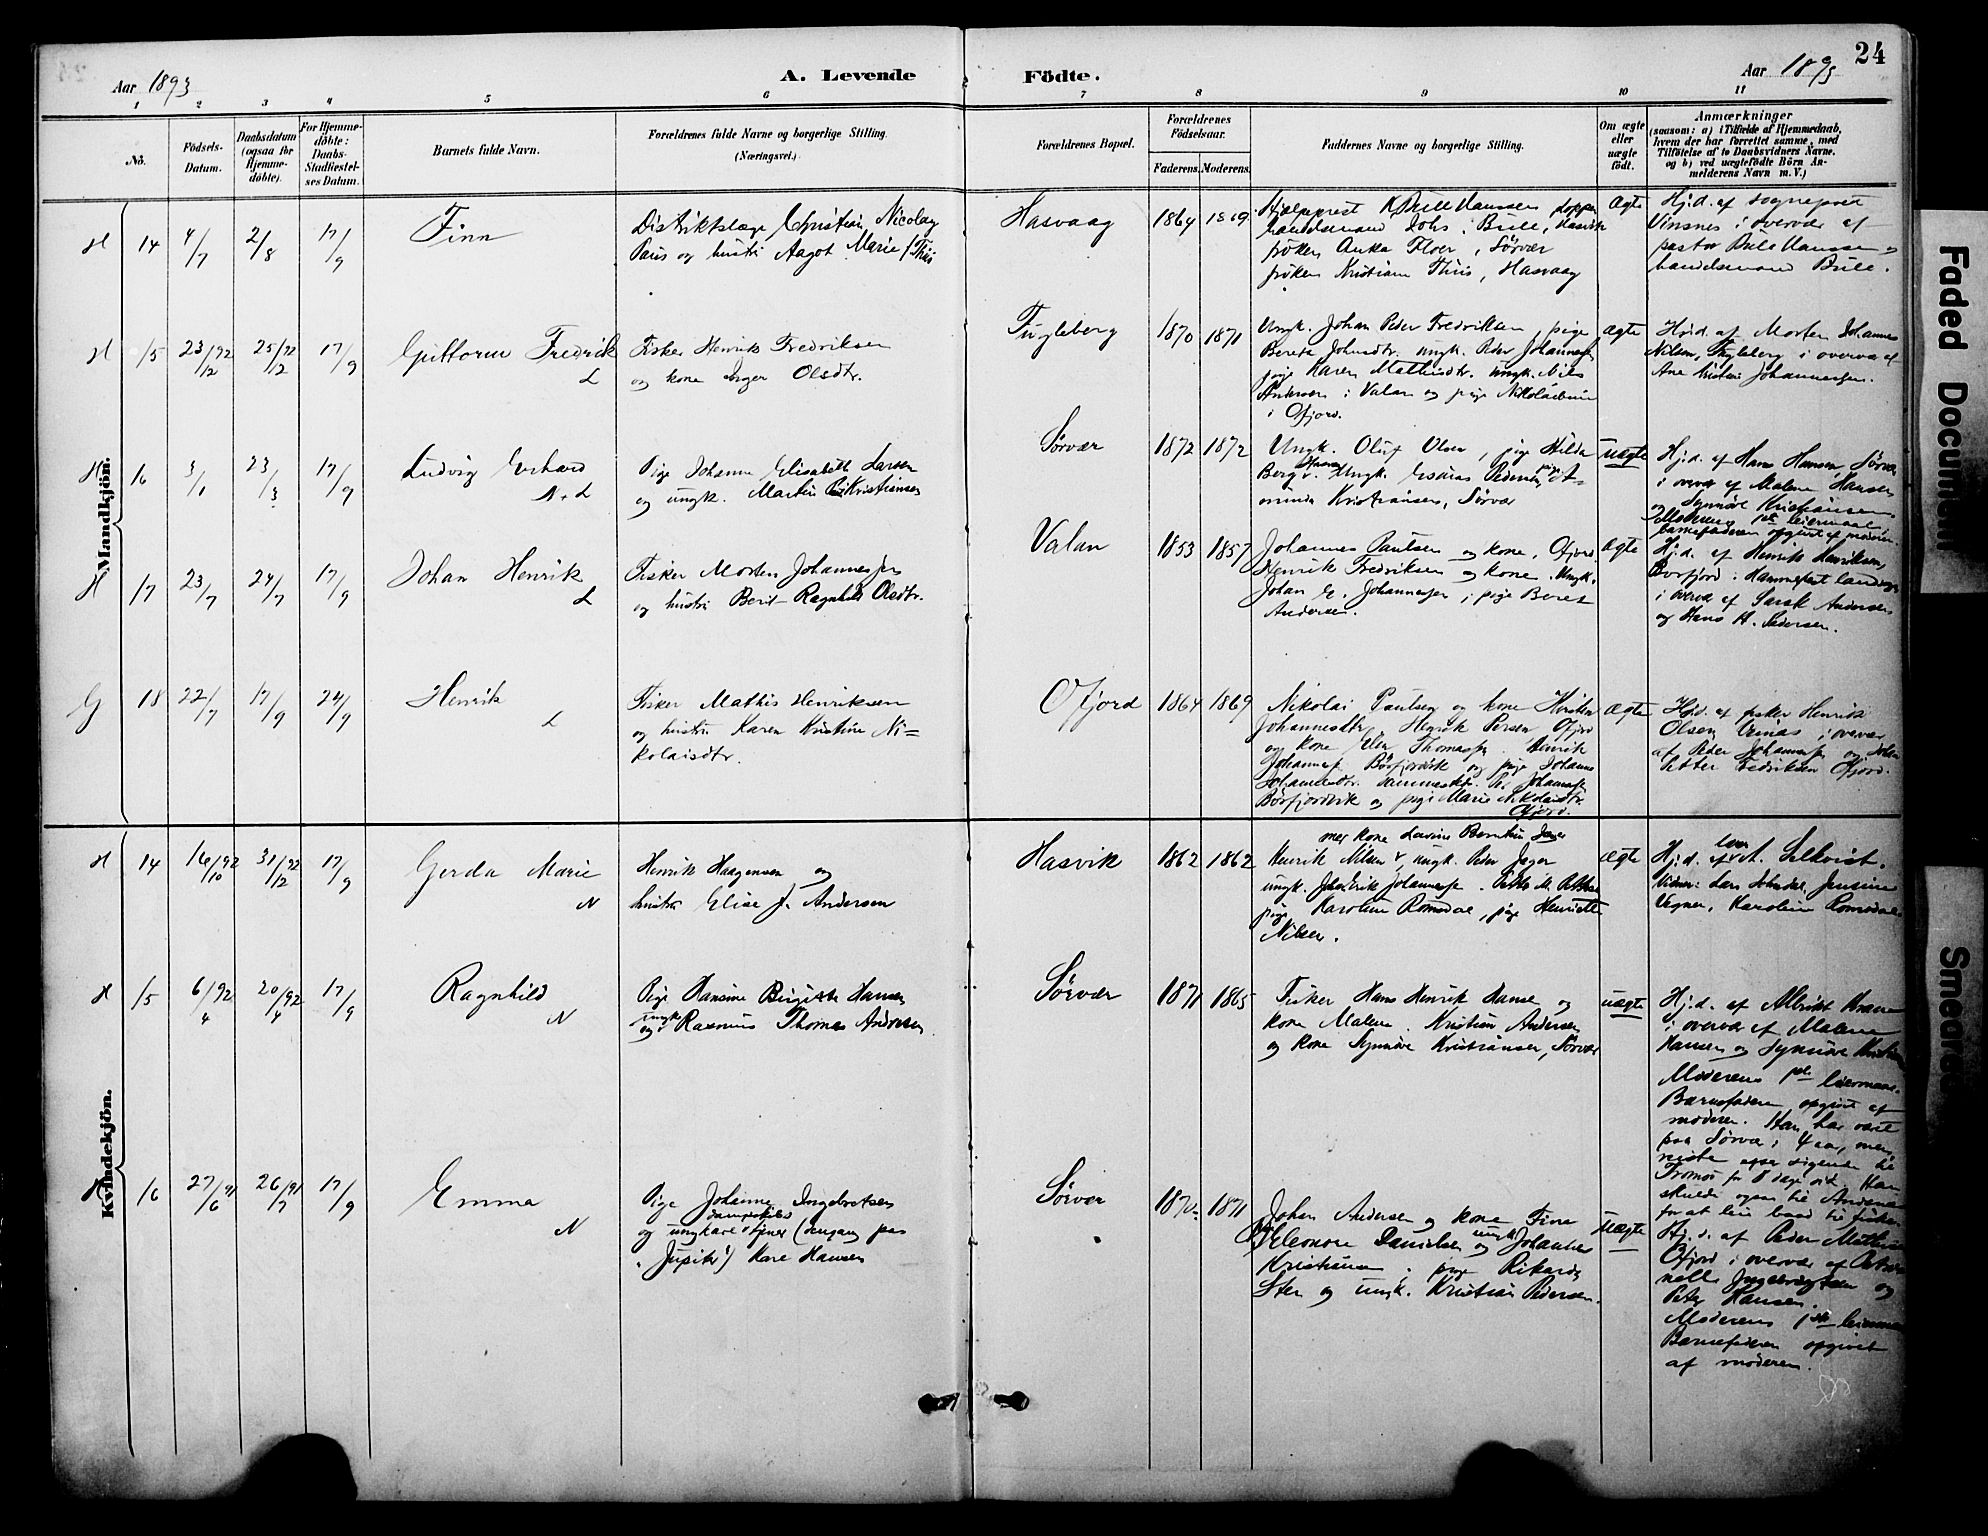 24
Aar 1893
A. Levende
Födte.
Aar 1893
1 2 3 4 5 6 7 8 9 10 11
No.
Födsels-
Datum.
Daabsdatum
(ogsaa för
Hjemme-
döbte).
For Hjemme-
döbte:
Daabs-
Stadfæstel-
ses Datum.
Barnets fulde Navn.
Forældrenes fulde Navne og borgerlige Stilling.
(Næringsvei.)
Forældrenes Bopæl.
Forældrenes
Födselsaar.
Faderens. Moderens.
Faddernes Navne og borgerlige Stilling.
Om ægte
eller
uægte
födt.
Anmærkninger
(saasom: a) i Tilfælde af Hjemmedaab,
hvem der har forrettet samme, med
Tilföielse af to Daabsvidners Navne.
og b) ved uægtefödte Börn An-
melderens Navn m. V.)
Mandkjön.
H 14 4/7 2/8 17/9
Finn
Distriktslæge Christian Nicolay
Paus og hustru Aagot Marie f. Thiis
Hasvaag
1864 1869
Hjælpeprest K Bull Hanssen, Loppen
handelsmand Johs. Bull, Hasvik
fröken Anka Floer, Sørvær
fröken Kristiane Thiis, Hasvaag
Ægte
Hj.d. af sogneprest
Vinsnes i overvær af
pastor Bull Hanssen og
handelsmand Bull.
H 15 23/12 92 25/12 92 17/9
Guttorm Fredrik
L
Fisker Henrik Fredriksen
og kone Inger Olsdtr.
Fugleberg
1870 1871
Ungk. Johan Peder Fredriksen, pige
Berete Johnsdtr. ungk. Peder Johannesen
pige Karen Mathisdtr. ungk. Nils
Andersen i Valan og pige
i Ofjord.
Ægte
Hj.d. af Morten Johannes
Nilsen, Fugleberg i overvær af
Ane Kristine Johannesen.
H 16 3/1 23/3 17/9
Ludvig Evihard
N + L
Pige Johanne Elisabeth Larsen
og ungk. Martin Kristiansen
Sørvær
1872 1872
Ungk. Oluf Olsen, pige Hilda
Berg v. Ungk. Esaias Pedersen, pige
Kristiansen, Sørvær
uægte
Hj.d. af Hans Hansen Sørvær
i overvær af Malene Hansen
og Synnøve Kristiansen.
Moderens 1ste leiermaal.
barnefaderen opgivet af moderen
H 17 23/7 24/7 17/9
Johan Henrik
L
Fisker Morten Johannesen
og hustru Berit Ragnhild Olsdtr.
Valan
1853 1857
Johannes Paulsen og kone, Ofjord
Henrik Fredriksen og kone. Ungk.
Johan E. Johannesen, pige Beret
Andersen.
Ægte
Hj.d. af Henrik Henriksen,
i Hammerfest landsogn
i overvær af Sarak Andersen
og Hans H. Pedersen.
G 18 22/7 17/9 24/9
Henrik
L
Fisker Mathis Henriksen
og hustru Karen Kristine Ni=
kolaisdtr.
Ofjord
1864 1869
Nikolai Paulsen og kone Kirsten
Johannesdtr, Henrik Persen Ofjord
og kone Elen Thomasen. Henrik
Johannesen Børfjordvik og pige Johanne
Børfjordvik og pige Marie Nikolaidtr.
Ofjord.
Ægte
Hj.d. af fisker Henrik
Olsen i overvær
af Peder Johannesen og Johan
Petter Fredriksen Ofjord.
Kvindekjön.
H 14 16/10 92 31/12 92 17/9
Gerda Marie
N
Henrik Haagensen og
hustru Elise J. Andersen
Hasvik
1862 1862
med kone Lavine Berntine Jæger
Henrik Nilsen v, ungk. Peder Jæger
ungk. Johs. Erik Johannesen.
pige Karoline Romsdal, pige Henriette
Nilsen.
Ægte
Hj.d. af A. Selkvist.
Vidner: Lars Johnsdal, Jensine
Vegner, Karoline Romsdal
H 15 6/4 92 20/4 92 17/9
Ragnhild
N
Pige Hansine Birgitte Hansen
og ungk. Rasmus Thomas Andersen
Sørvær
1871 1865
Fisker Hans Henrik Hansen og
kone Malene. Kristian Andersen
og kone Synnøve Kristiansen, Sørvær
uægte
Hj.d. af Albrikt Krane
i overvær af Malene
Hansen og Synnøve
Moderens 1ste leiermaal.
Barnefaderen opgivet af
moderen. Han har været
paa Sørvær i 4 aar, men
reiste efter sigende til
Tromsø for 8 dage sid. Han
skulde ogsaa til Andenæs
for at leie baad til fiske
H 16 27/6 91 26/7 91 17/9
Emma
N
Pige Johanne Ingebrigtsen
og ungkarl dampskibs tjener (engang paa
"Jupiter") Kare Hansen
Sørvær
1870 1871
Johan Andersen og kone Fine
Eleonore Danielsen og ungk. Johannes
Kristiansen. pige Rikarda
Sten og ungk. Kristian Pedersen.
uægte
Hj.d. af Peder Mathisen
Ofjord i overvær af
Ingebrigtsen og
Peter Hansen.
Moderens 1ste leiermaal
Barnefaderen opgivet
af moderen.
Faded Document
Smeared